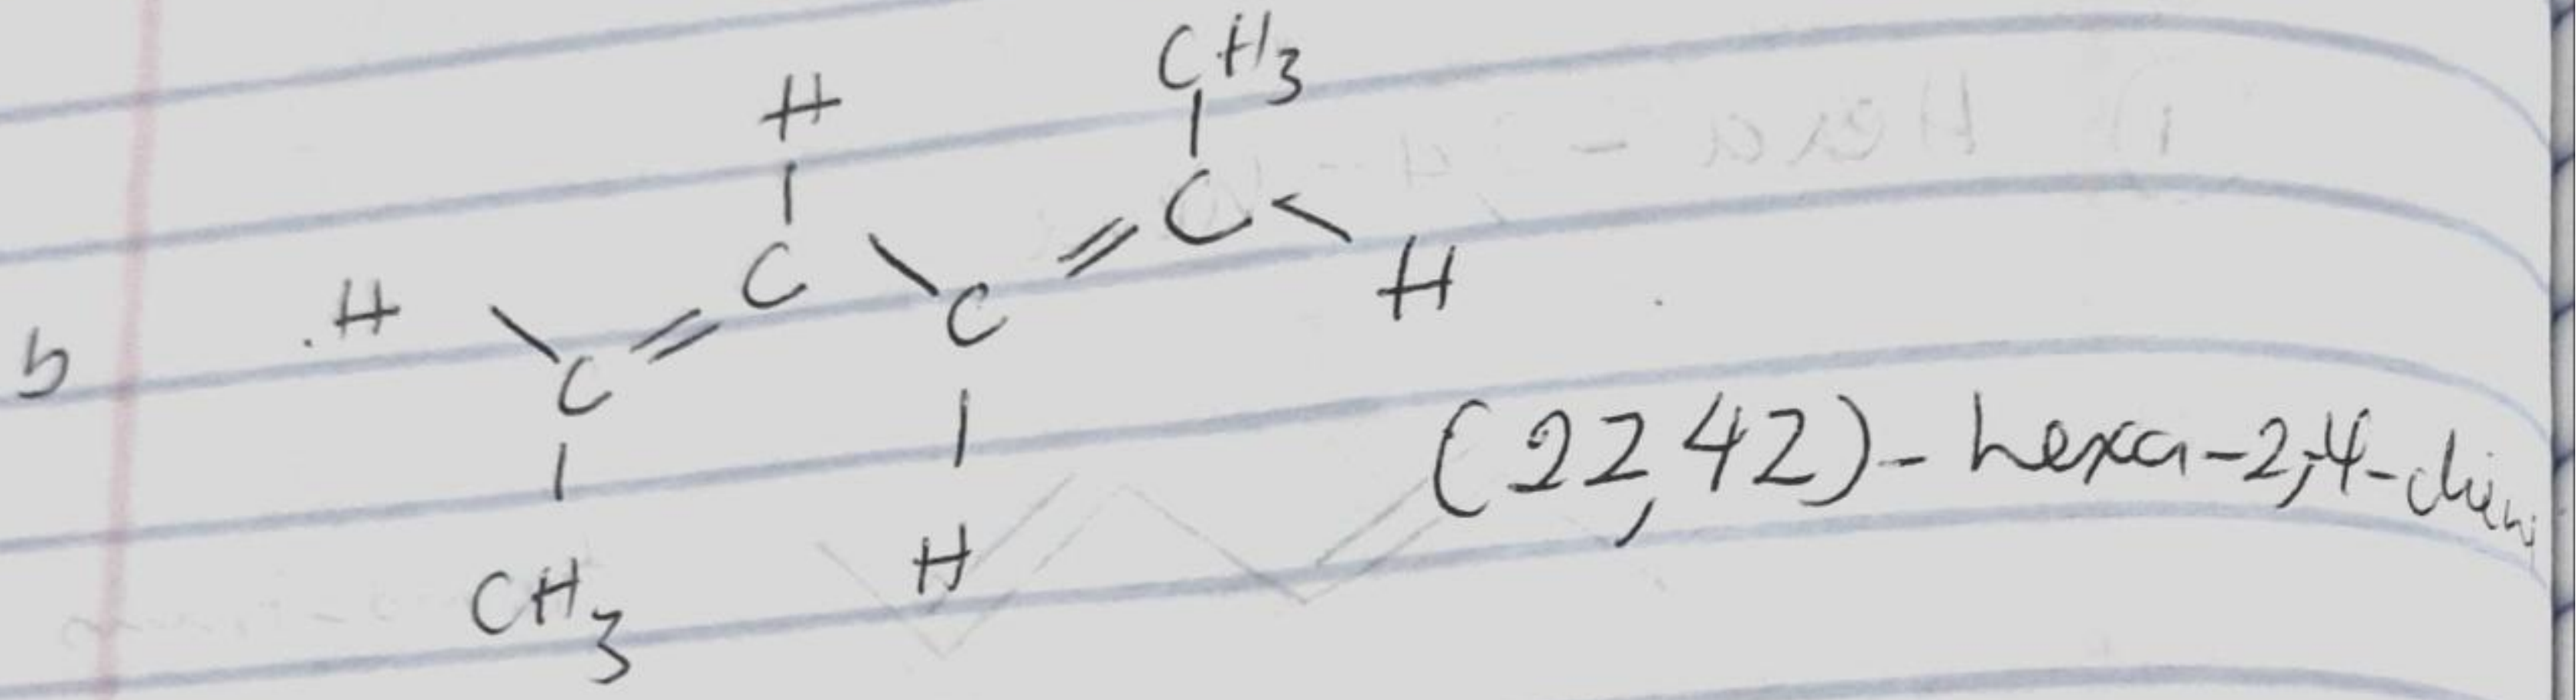 CH3
H
C
H C C H
b C
H
CH3
(2Z,4Z)-hexa-2,4-dien